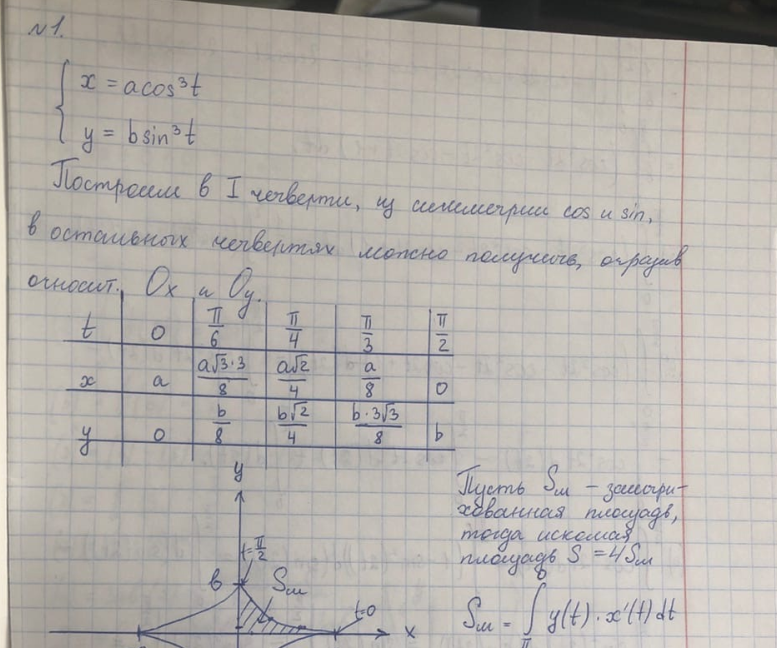 №1.
{ x = a cos³t
y = b sin³t
Построим в I четверти, из симметрии cos и sin,
в остальных четвертях можно получить, отразив
относит. Ox и Oy.
t | 0 | π/6 | π/4 | π/3 | π/2
x | a | a√3·3/8 | a√2/4 | a/8 | 0
y | 0 | b/8 | b√2/4 | b·3√3/8 | b
y
t=π/2
b
Sш
t=0
x
Пусть Sш – заштри-
хованная площадь,
тогда искомая
площадь S = 4Sш
Sш = ∫ y(t)·x'(t)dt
0
π